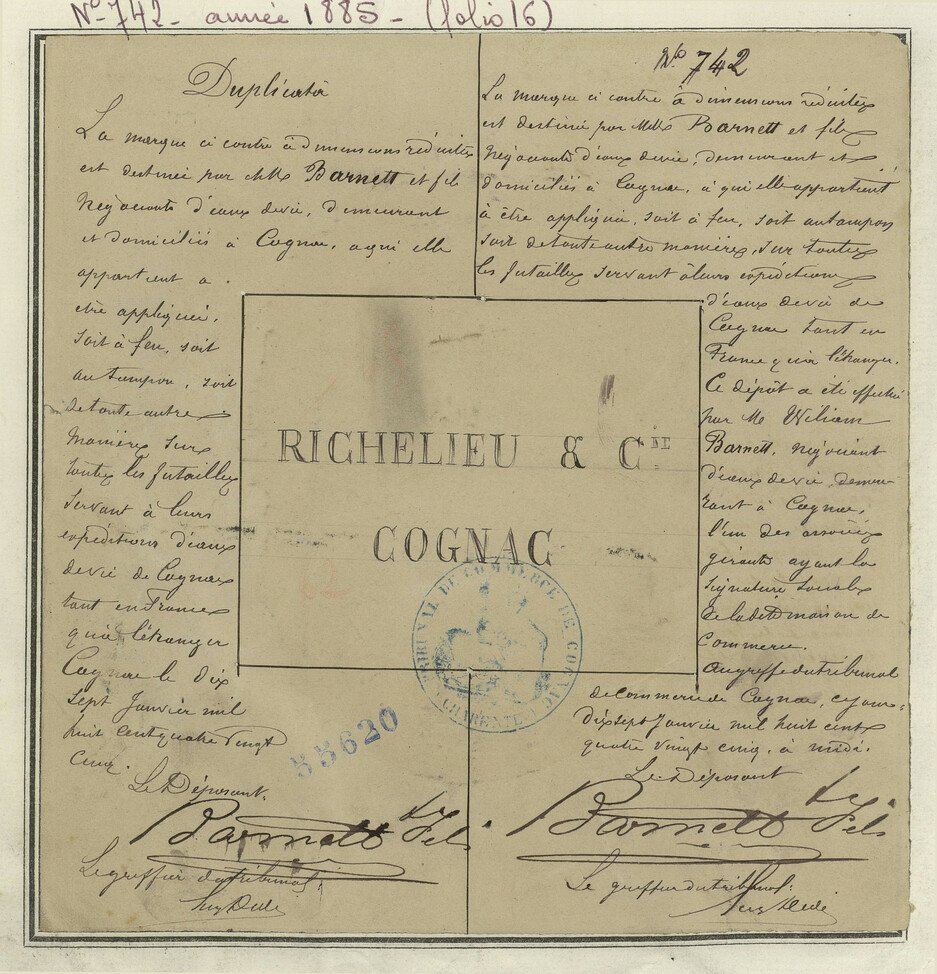 No 742 - année 1885 - (folio 16)
Duplicata
La marque ci contre à dimensions réduites
est destinée par MM. Barnett et fils
Négociants d'eaux de vie, demeurant
et domiciliés à Cognac, a qui elle
appartient a
être appliquée,
soit à feu, soit
au tampon, soit
de toute autre
manière sur
toutes les futailles
servant à leurs
expéditions d'eaux
de vie de Cognac
tant en France
qu'à l'étranger
Cognac le dix
sept Janvier mil
huit cent quatre vingt
cinq.
Le Déposant.
Barnett & Fils
Le greffier du tribunal:
No 742
La marque ci contre à dimensions réduites
est destinée par MM. Barnett et fils
Négociants d'eaux de vie, demeurant et
domiciliés à Cognac, à qui elle appartient
à être appliquée, soit à feu, soit au tampon
soit de toute autre manière, sur toutes
les futailles servant à leurs expéditions
d'eaux de vie de
Cognac tant en
France qu'à l'étranger.
Ce dépôt a été effectué
par Mr William
Barnett, négociant
d'eaux de vie, demeu-
rant à Cognac,
l'un des associés
gérants ayant la
signature sociale
de la dite maison de
Commerce.
Au greffe du tribunal
de commerce de Cognac, ce jour
dix sept Janvier mil huit cent
quatre vingt cinq, à midi.
Le Déposant
Barnett & Fils
Le greffier du tribunal:
RICHELIEU & CIE
COGNAC
TRIBUNAL DE COMMERCE DE COGNAC
CHARENTE
35620